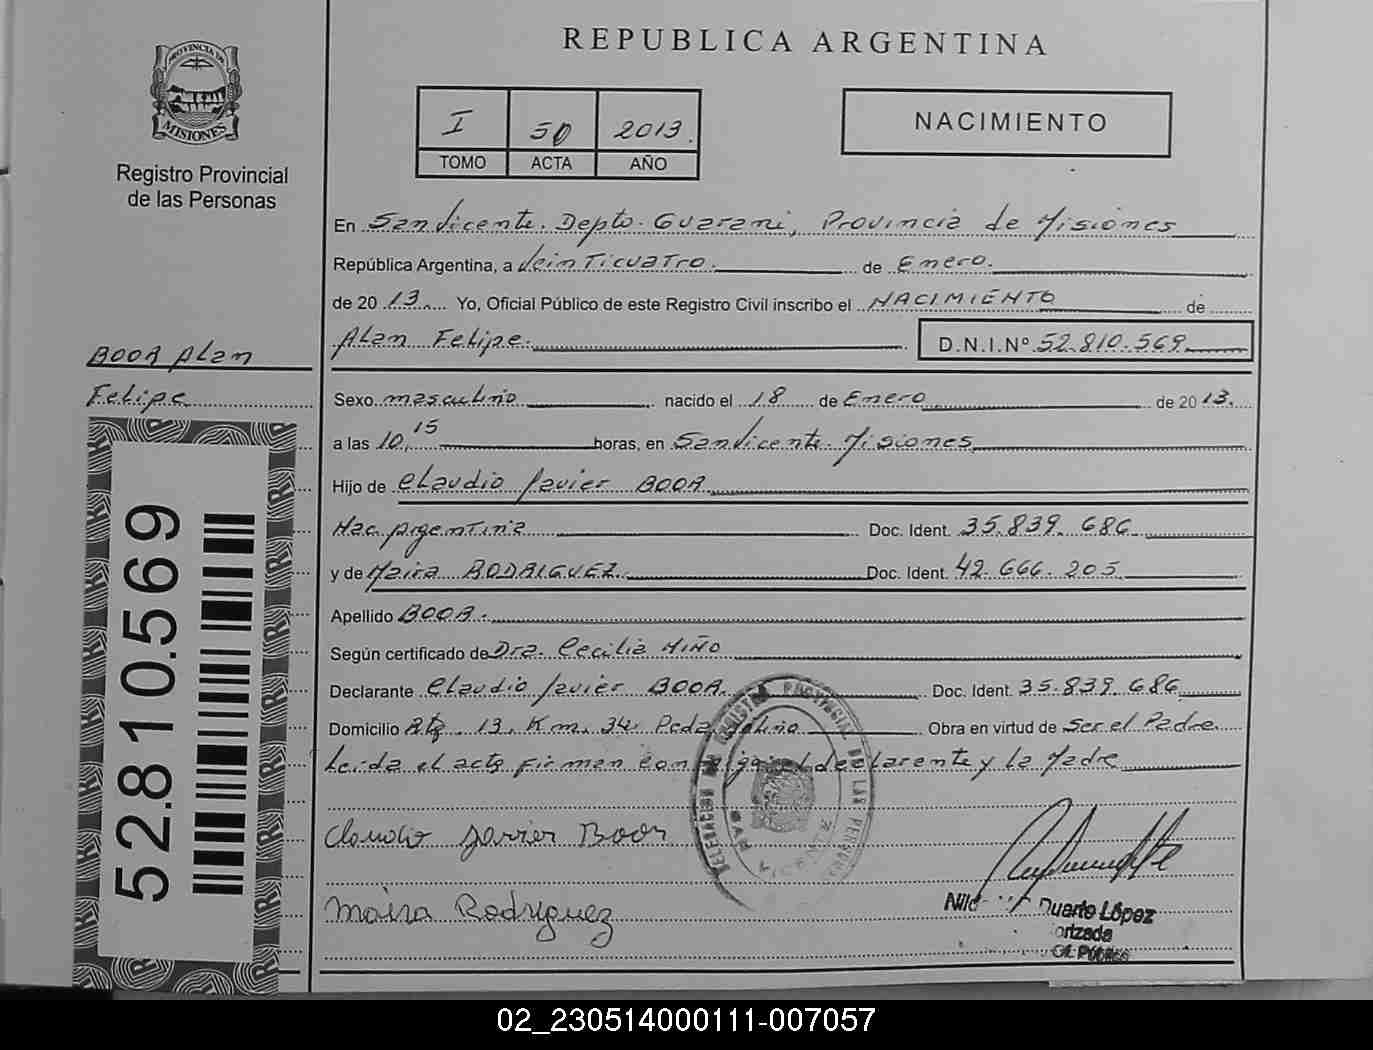 REPUBLICA ARGENTINA
PROVINCIA DE
MISIONES
Registro Provincial
de las Personas
I 50 2013.
TOMO ACTA AÑO
NACIMIENTO
En San Vicente. Depto. Guarani, Provincia de Misiones
República Argentina, a Veinticuatro. de Enero.
de 20 13. Yo, Oficial Público de este Registro Civil inscribo el NACIMIENTO de
Alan Felipe. D.N.I.Nº 52.810.569
BOOR Alan
Felipe
Sexo masculino nacido el 18 de Enero de 20 13.
a las 10,15 horas, en San Vicente. Misiones
Hijo de Claudio Javier BOOR
Nac. Argentina Doc. Ident. 35.839.686
y de Maira RODRIGUEZ. Doc. Ident. 42.666.205
Apellido BOOR.
Según certificado de Dra. Cecilia MIÑO
Declarante Claudio Javier BOOR. Doc. Ident. 35.839.686
Domicilio 13. Km. 34. Obra en virtud de Ser el Padre
Leida el acta firman con declarante y la Madre
Claudio Javier Boor
Maira Rodriguez
Duarte López
52.810.569
02_230514000111-007057